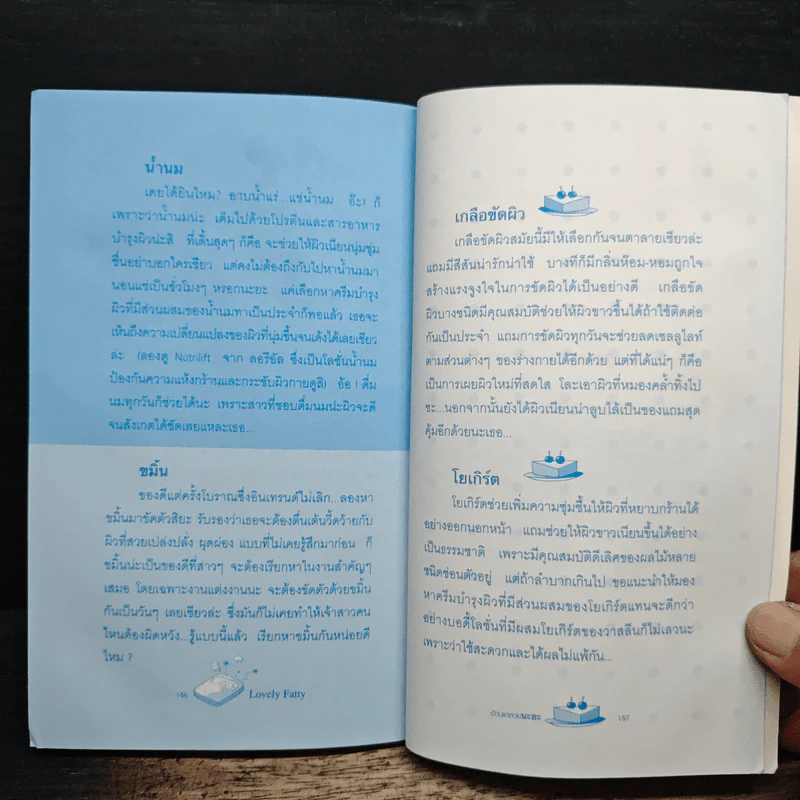 น้ำนม
เคยได้ยินไหม? อาบน้ำแร่...แช่น้ำนม อ๊ะ! ก็
เพราะว่าน้ำนมน่ะ เต็มไปด้วยโปรตีนและสารอาหาร
บำรุงผิวน่ะสิ ที่เด็นสุดๆ ก็คือ จะช่วยให้ผิวเนียนนุ่มชุ่ม
ชื่นอย่าบอกใครเชียว แต่คงไม่ต้องถึงกับไปหาน้ำนมมา
นอนแช่เป็นชั่วโมงๆ หรอกนะยะ แค่เลือกหาครีมบำรุง
ผิวที่มีส่วนผสมของน้ำนมทาเป็นประจำก็พอแล้ว เธอจะ
เห็นถึงความเปลี่ยนแปลงของผิวที่นุ่มขึ้นจนเด้งได้เลยเชียว
ล่ะ (ลองดู Nutrilift จาก ลอรีอัล ซึ่งเป็นโลชั่นน้ำนม
ป้องกันความแห้งกร้านและกระชับผิวกายดูสิ) อ้อ ! ดื่ม
นมทุกวันก็ช่วยได้นะ เพราะสาวที่ชอบดื่มนมน่ะผิวจะดี
จนสังเกตได้ชัดเลยแหละเธอ...
ขมิ้น
ของดีแต่ครั้งโบราณซึ่งอินเทรนด์ไม่เลิก...ลองหา
ขมิ้นมาขัดตัวสิยะ รับรองว่าเธอจะต้องตื่นเต้นวี้ดว้ายกับ
ผิวที่สวยเปล่งปลั่ง ผุดผ่อง แบบที่ไม่เคยรู้สึกมาก่อน ก็
ขมิ้นน่ะเป็นของดีที่สาวๆ จะต้องเรียกหาในงานสำคัญๆ
เสมอ โดยเฉพาะงานแต่งงานนะ จะต้องขัดตัวด้วยขมิ้น
กันเป็นวันๆ เลยเชียวล่ะ ซึ่งมันก็ไม่เคยทำให้เจ้าสาวคน
ไหนต้องผิดหวัง...รู้แบบนี้แล้ว เรียกหาขมิ้นกันหน่อยดี
ไหม ?
166 Lovely Fatty
เกลือขัดผิว
เกลือขัดผิวสมัยนี้มีให้เลือกกันจนตาลายเชียวล่ะ
แถมมีสีสันน่ารักน่าใช้ บางทีก็มีกลิ่นห๊อม-หอมถูกใจ
สร้างแรงจูงใจในการขัดผิวได้เป็นอย่างดี เกลือขัด
ผิวบางชนิดมีคุณสมบัติช่วยให้ผิวขาวขึ้นได้ถ้าใช้ติดต่อ
กันเป็นประจำ แถมการขัดผิวทุกวันจะช่วยลดเซลลูไลท์
ตามส่วนต่างๆ ของร่างกายได้อีกด้วย แต่ที่ได้แน่ๆ ก็คือ
เป็นการเผยผิวใหม่ที่สดใส โละเอาผิวที่หมองคล้ำทิ้งไป
ซะ...นอกจากนั้นยังได้ผิวเนียนน่าลูบไล้เป็นของแถมสุด
คุ้มอีกด้วยนะเธอ...
โยเกิร์ต
โยเกิร์ตช่วยเพิ่มความชุ่มชื้นให้ผิวที่หยาบกร้านได้
อย่างออกนอกหน้า แถมช่วยให้ผิวขาวเนียนขึ้นได้อย่าง
เป็นธรรมชาติ เพราะมีคุณสมบัติดีเลิศของผลไม้หลาย
ชนิดซ่อนตัวอยู่ แต่ถ้าลำบากเกินไป ขอแนะนำให้มอง
หาครีมบำรุงผิวที่มีส่วนผสมของโยเกิร์ตแทนจะดีกว่า
อย่างบอดี้โลชั่นที่มีผสมโยเกิร์ตของวาสลีนก็ไม่เลวนะ
เพราะว่าใช้สะดวกและได้ผลไม่แพ้กัน...
อ้วนแต่สวยนะยะ 167